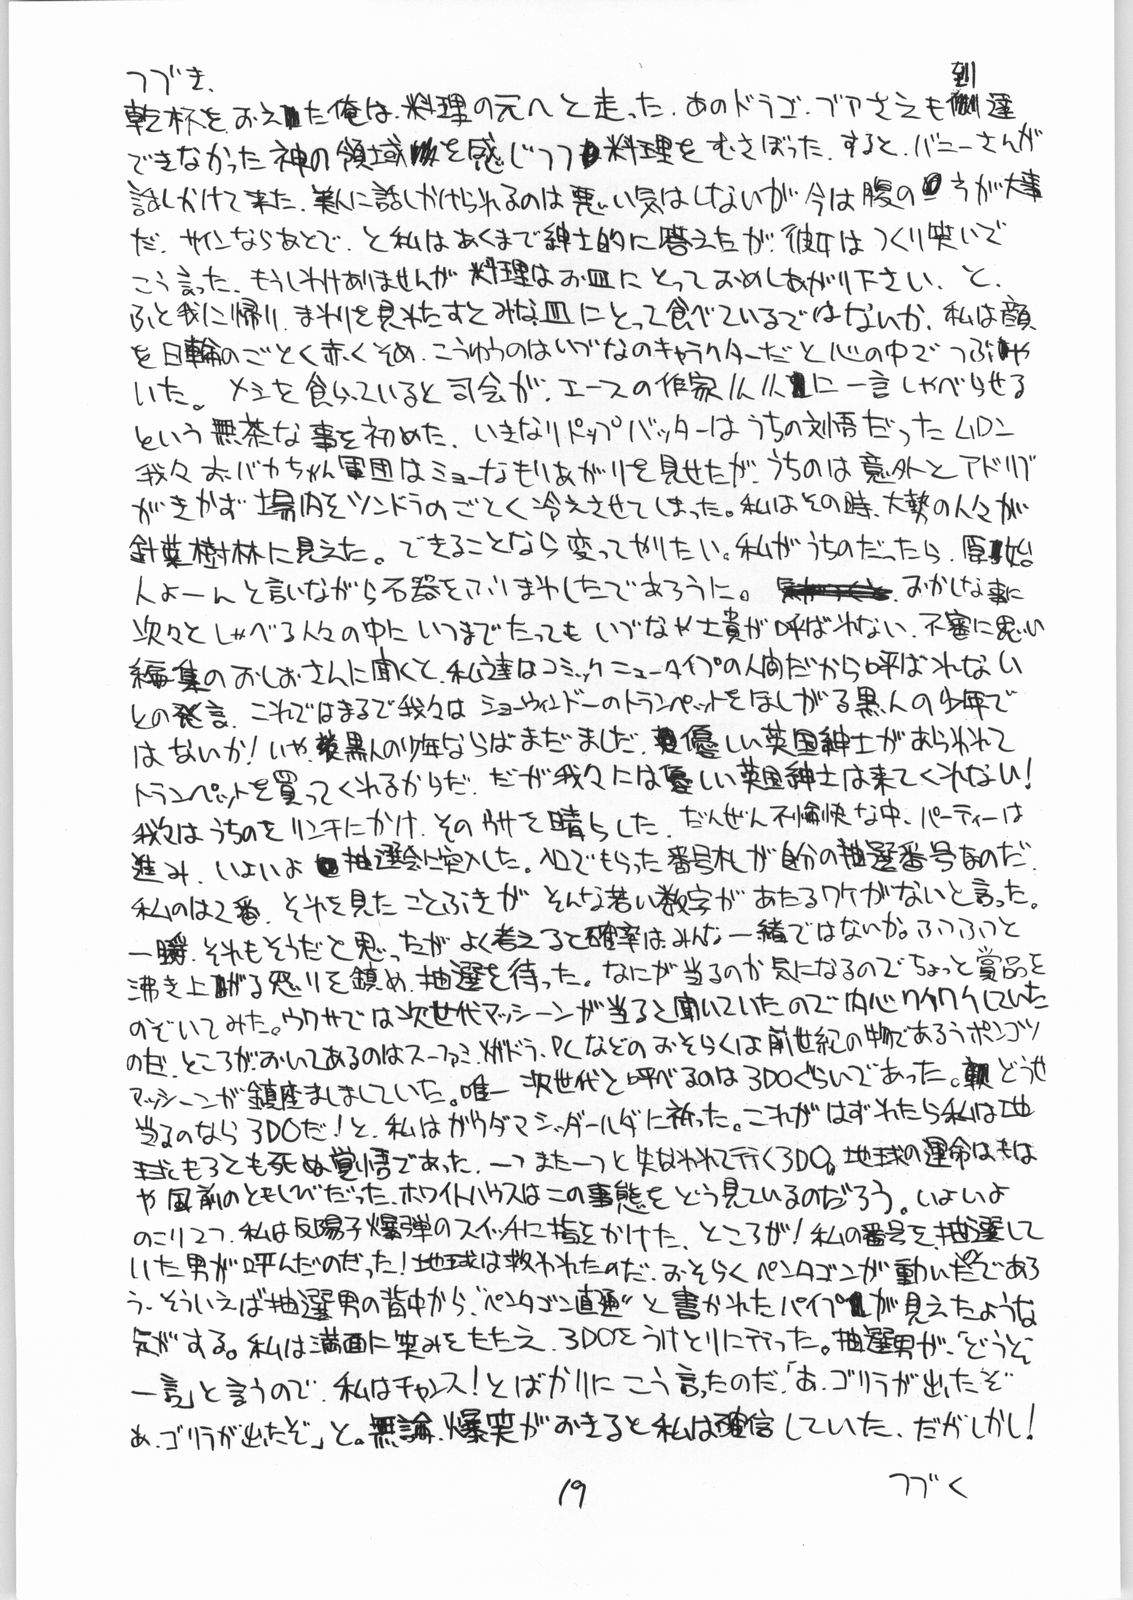 つづき、
乾杯を、おえた俺は、料理の元へと走った。あのドラゴ、ブアさえも到達
できなかった神の領域を感じつつ料理をむさぼった。すると、バニーさんが
話しかけて来た。美人に話しかけられるのは悪い気はしないが今は腹の方が大事
だ。サインならあとで、と私はあくまで紳士的に答えたが、彼女はつくり笑いで
こう言った。もうしわけありませんが料理はお皿にとっておめしあがり下さい、と。
ふと我に帰り、まわりを見わたすとみな皿にとって食べているではないか、私は顔
を日輪のごとく赤くそめ、こうゆうのはいづなのキャラクターだと心の中でつぶや
いた。メシを食らっていると司会が、エースの作家〃〃に一言しゃべらせる
という無茶な事を初めた、いきなりトップバッターはうちの刻悟だったムロン
我々おバカちゃん軍団はミョーなもりあがりを見せたが、うちのは意外とアドリブ
がきかず場内をツンドラのごとく冷えさせてしまった。私はその時、大勢の人々が
針葉樹林に見えた。できることなら変ってやりたい。私がうちのだったら、原始
人よーんと言いながら石器をふりまわしたであろうに。おかしな事に
次々としゃべる人々の中にいつまでたってもいづなや士貴が呼ばれない、不審に思い
編集のおしおさんに聞くと、私達はコミックニュータイプの人間だから呼ばれない
との発言、これではまるで我々はショーウィンドーのトランペットをほしがる黒人の少年で
はないか!いや、黒人の少年ならばまだましだ、優しい英国紳士があらわれて
トランペットを買ってくれるからだ、だが我々には優しい英国紳士は来てくれない!
我々はうちのをリンチにかけ、そのウサを晴らした、だんぜん不愉快な中、パーティーは
進み、いよいよ抽選会に突入した。入口でもらった番号札が自分の抽選番号なのだ、
私のは2番、それを見たことぶきがそんな若い数字があたるワケがないと言った。
一瞬、それもそうだと思ったがよく考えると確率はみんな一緒ではないか。ふつふつと
沸き上がる怒りを鎮め、抽選を待った。なにが当るのか気になるのでちょっと賞品を
のぞいてみた。ウワサでは次世代マッシーンが当ると聞いていたので内心ワクワクしていた
のだ、ところが、おいてあるのはスーファミ、メガドラ、PCなどのおそらくは前世紀の物であろうポンコツ
マッシーンが鎮座ましましていた。唯一次世代と呼べるのは3DOぐらいであった。どうせ
当るのなら3DOだ!と、私はガウダマ・シッダールダに祈った。これがはずれたら私は地
球もろとも死ぬ覚悟であった、一つまた一つと失なわれて行く3DO。地球の運命はもは
や風前のともしびだった、ホワイトハウスはこの事態をどう見ているのだろう。いよいよ
のこり2つ、私は反陽子爆弾のスイッチに指をかけた、ところが!私の番号を、抽選して
いた男が呼んだのだった!地球は救われたのだ、おそらくペンタゴンが動いたのであろ
う、そういえば抽選男の背中から、"ペンタゴン直通"と書かれたパイプが見えたような
気がする。私は満面に笑みをたたえ、3DOをうけとりに行った。抽選男が、「どうぞ
一言」と言うので、私はチャンス!とばかりにこう言ったのだ「あ、ゴリラが出たぞ
あ、ゴリラが出たぞ」と。無論、爆笑がおきると私は確信していた、だがしかし!
つづく
19